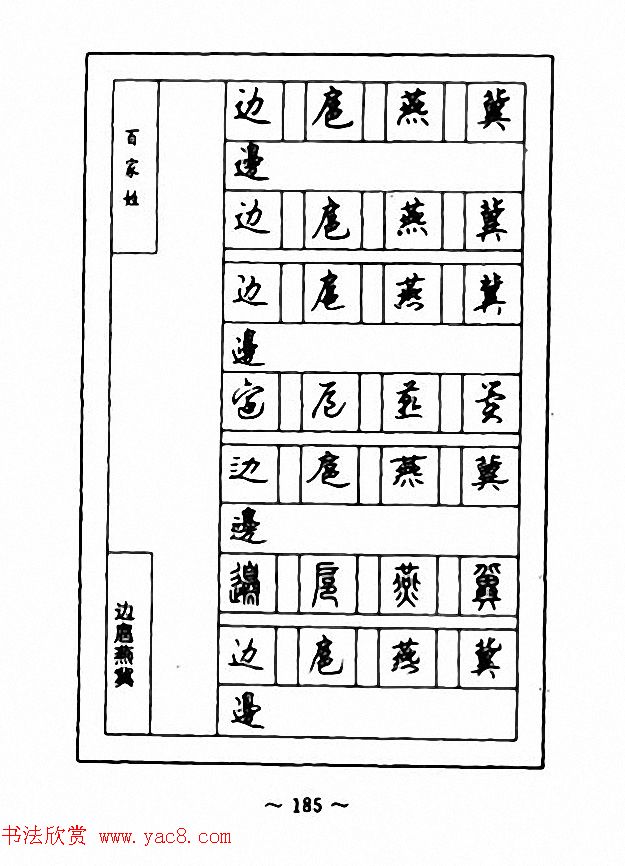 百家姓
边 扈 燕 冀
邊
边 扈 燕 冀
边 扈 燕 冀
邊
边 扈 燕 冀
邊
边 扈 燕 冀
边扈燕冀
邊
~ 185 ~
书法欣赏 www.yac8.com